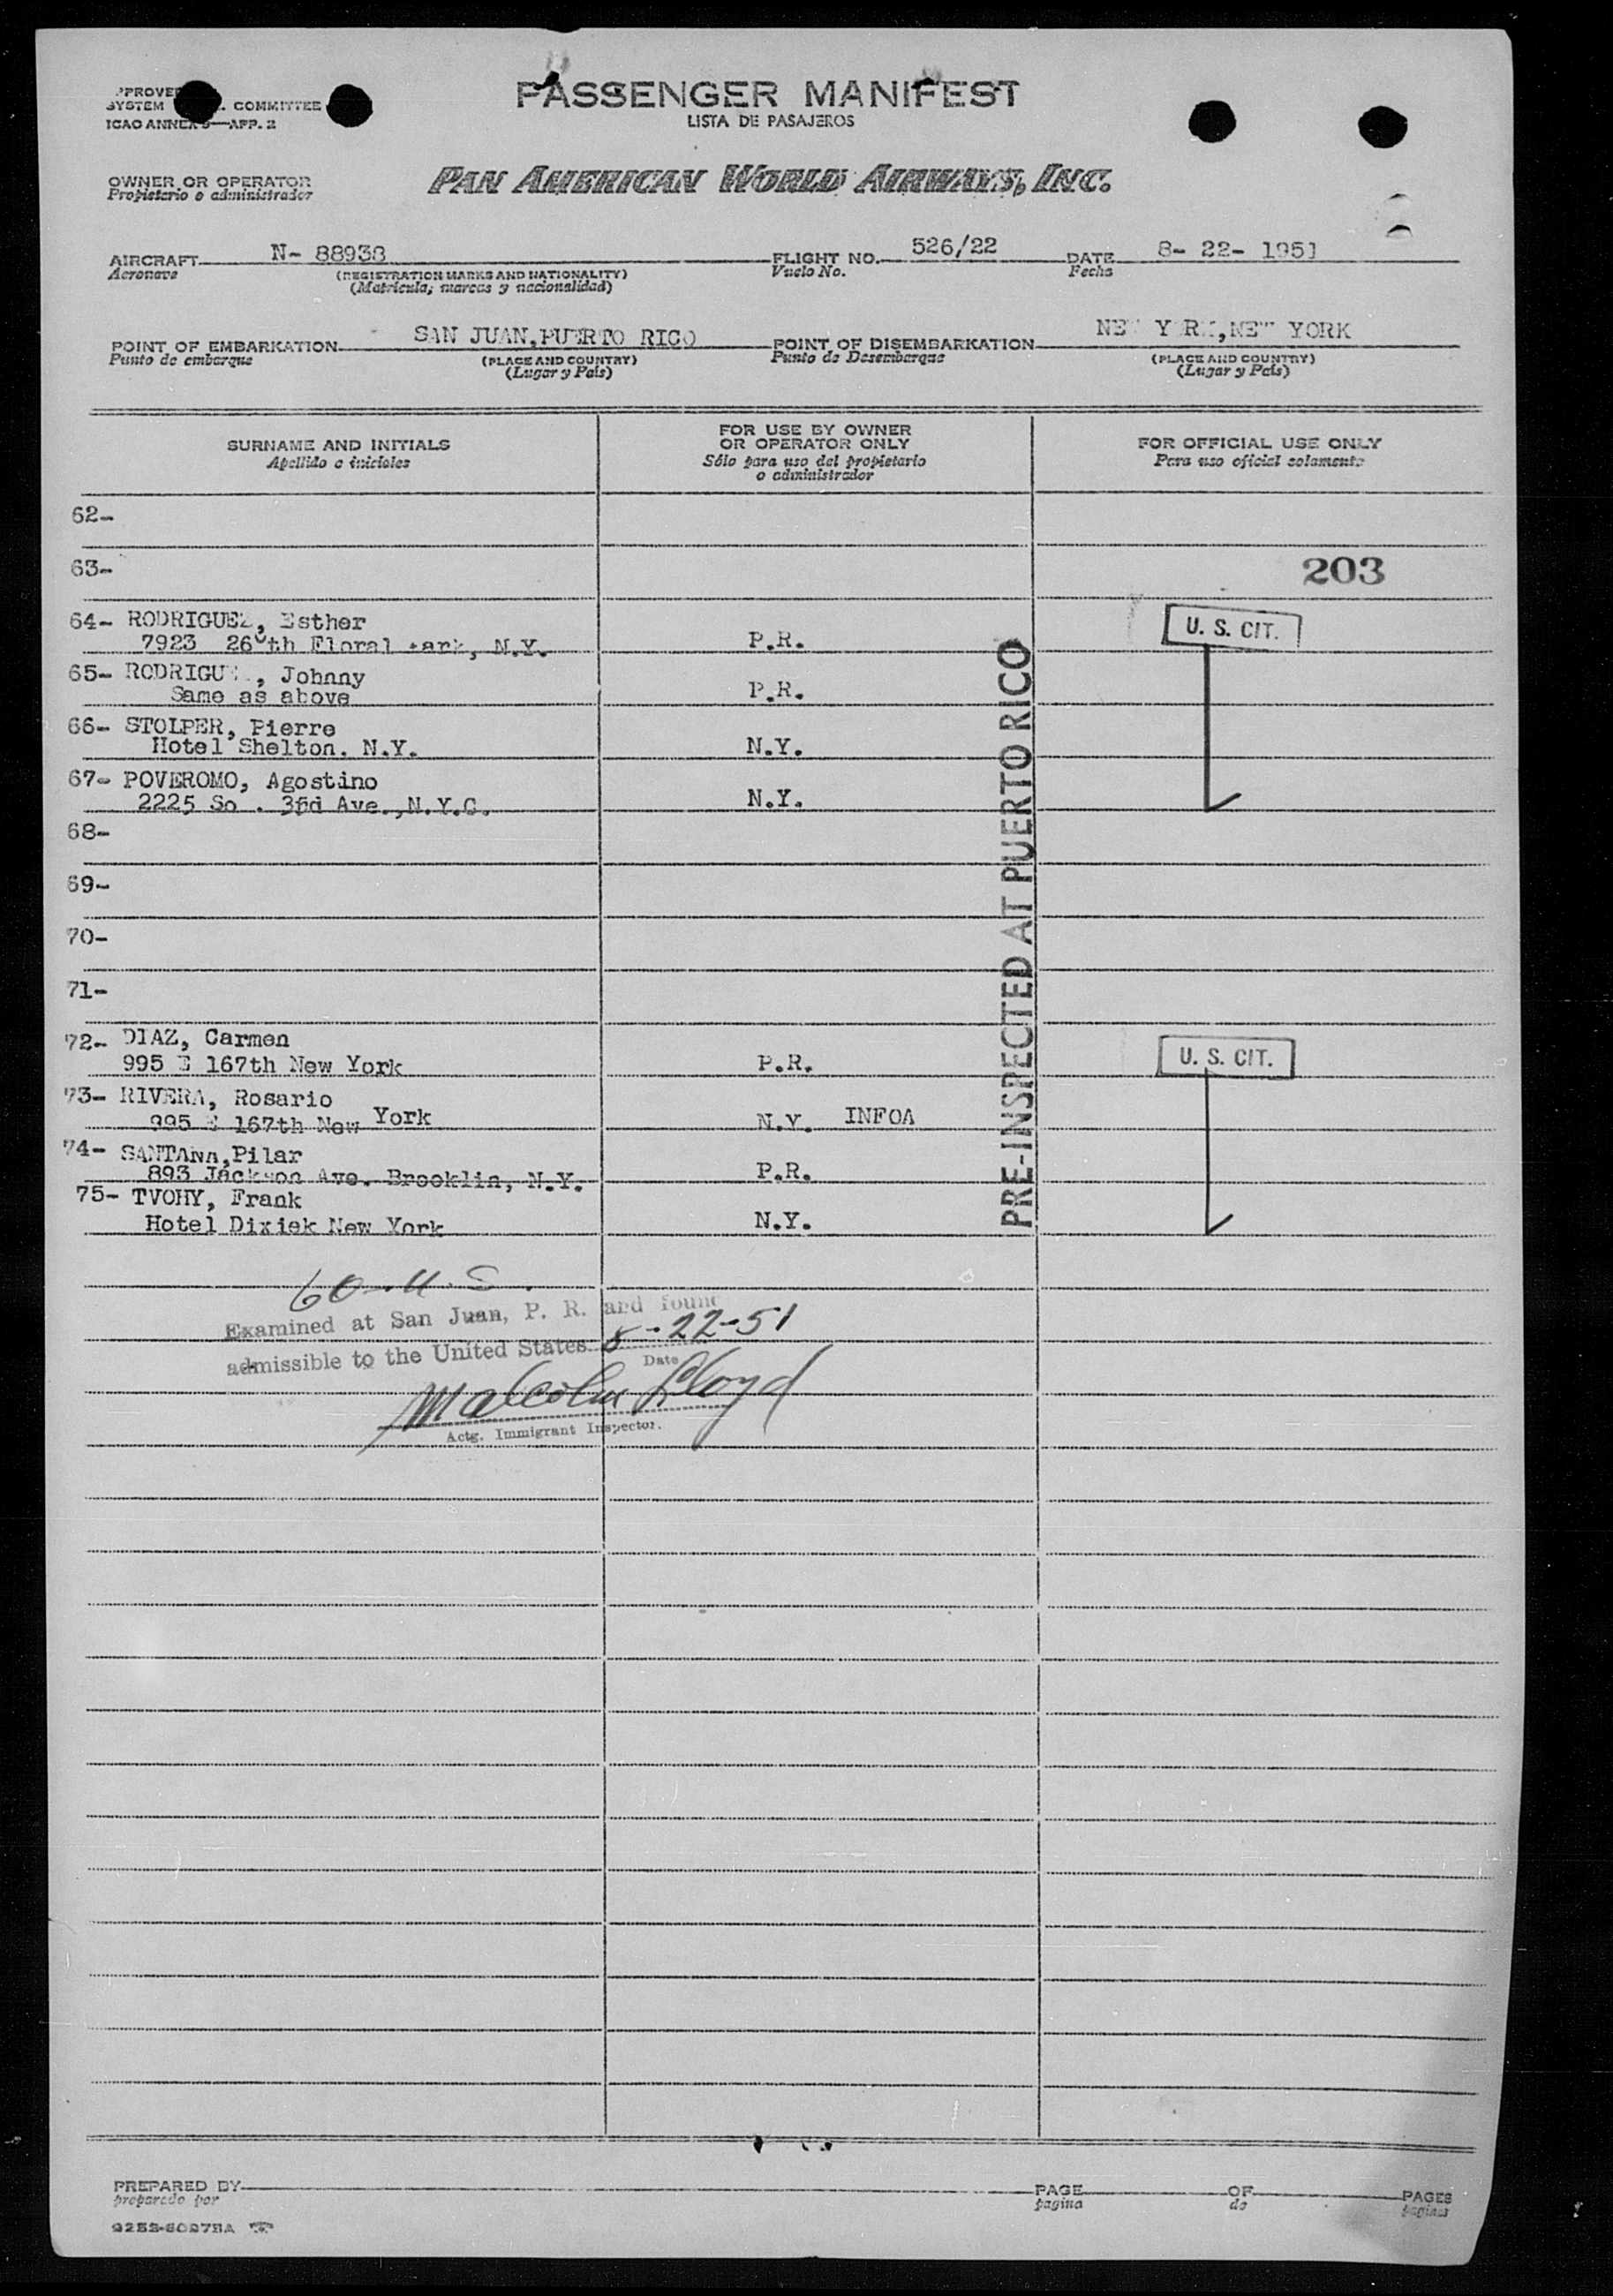 PASSENGER MANIFEST
LISTA DE PASAJEROS
SYSTEM COMMITTEE
ICAO ANNEX 9—APP. 2
OWNER OR OPERATOR
Propietario o administrador
PAN AMERICAN WORLD AIRWAYS, INC.
AIRCRAFT N- 88938 FLIGHT NO. 526/22 DATE 8- 22- 1951
Aeronave (REGISTRATION MARKS AND NATIONALITY) Vuelo No. Fecha
(Matrícula; marcas y nacionalidad)
POINT OF EMBARKATION SAN JUAN,PUERTO RICO POINT OF DISEMBARKATION YORK
Punto de embarque (PLACE AND COUNTRY) Punto de Desembarque (PLACE AND COUNTRY)
(Lugar y País) (Lugar y País)
SURNAME AND INITIALS
Apellido e iniciales
FOR USE BY OWNER
OR OPERATOR ONLY
Sólo para uso del propietario
o administrador
FOR OFFICIAL USE ONLY
Para uso oficial solamente
62-
63- 203
64- RODRIGUEZ, Esther U. S. CIT.
7923 26 th Floral N.Y. P.R.
65- Johnny
Same as above P.R.
66- STOLPER, Pierre
Hotel Shelton. N.Y. N.Y.
67- POVEROMO, Agostino
2225 So . Ave.,N.Y.C. N.Y.
68-
69-
70-
71-
PRE-INSPECTED AT PUERTO RICO
72- DIAZ, Carmen U. S. CIT.
995 E 167th New York P.R.
73- RIVERA, Rosario
995 E 167th New York N.Y. INFOA
74- SANTANA,Pilar
893 Jackson Ave. Brooklin, N.Y. P.R.
75- TVOHY, Frank
Hotel Dixiek New York N.Y.
60-U.S.
Examined at San Juan, P. R. and found
admissible to the United States 8-22-51
Date
Malcolm Lloyd
Actg. Immigrant Inspector.
PREPARED BY PAGE OF PAGES
preparado por página de páginas